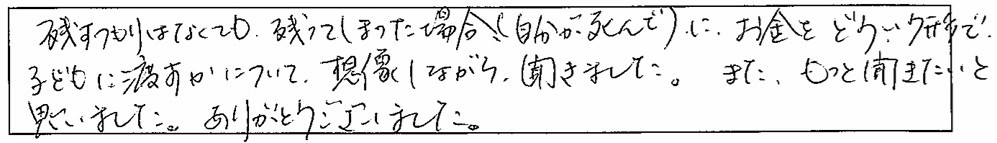 残すつもりはなくても、残ってしまった場合(自分が死んで)に、お金をどういう形で
子どもに渡すかについて、想像しながら、聞きました。また、もっと聞きたいと
思いました。ありがとうございました。